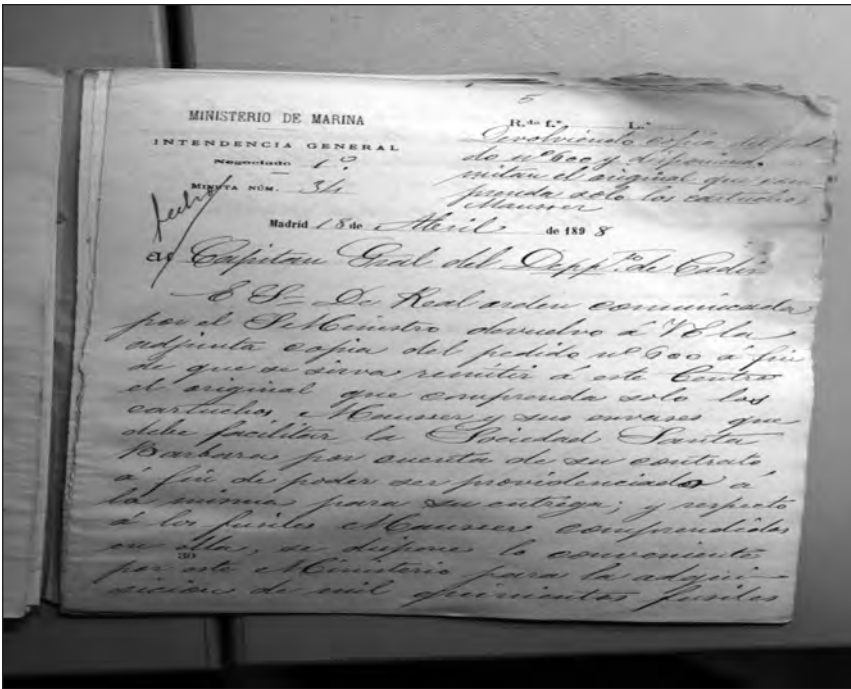 5
MINISTERIO DE MARINA
INTENDENCIA GENERAL
Negociado 1º
MINUTA NÚM. 34
R.do f.º L.º
Devolviendo copia del
do nº 600 y disponiendo
mitan el original que com
prenda solo los cartuchos
Mausser
fecho
Madrid 18 de Abril de 1898
Al Capitan Gral del Depp.to de Cadiz
E S.r De Real orden comunicada
por el S Ministro devuelvo á VE la
adjunta copia del pedido nº 600 á fin
de que se sirva remitir á este Centro
el original que comprenda solo los
cartuchos Mausser y sus envases que
debe facilitar la Sociedad Santa
Barbara por cuenta de su contrato
á fin de poder ser providenciado á
la misma para su entrega; y respecto
á los fusiles Mausser comprendidos
en ella, se dispone lo conveniente
30
por este Ministerio para la adqui-
sicion de mil quinientos fusiles